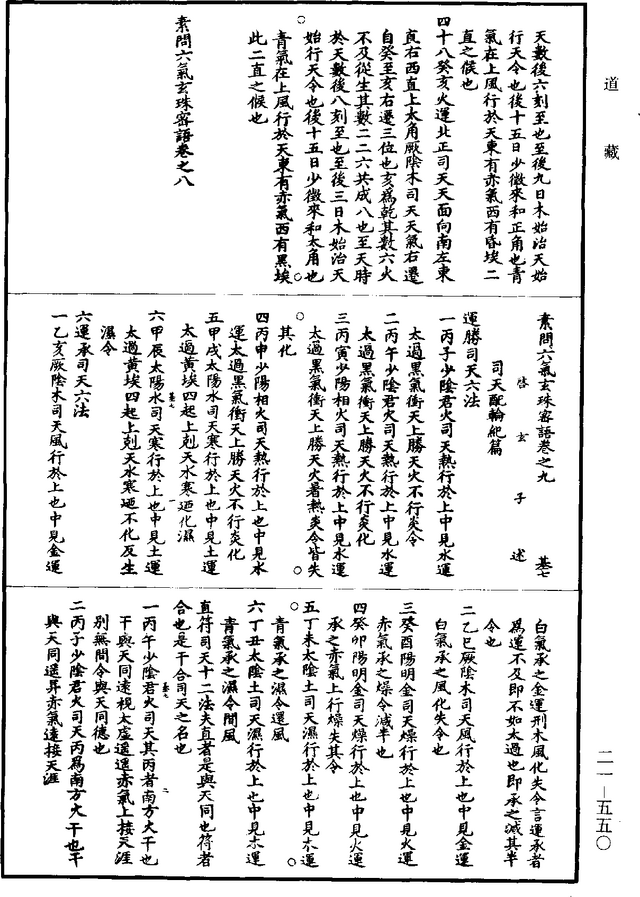 道藏
天數後六刻至也至後九日木始治天始
行天令也後十五日少徵來和正角也青
氣在上風行於天東有赤氣西有昏埃二
直之候也
四十八癸亥火運北正司天天面向南左東
直右西直上太角厥陰木司天天氣右遷
自癸至亥右遷三位也亥為乾其數六火
不及從生其數二二六共成八也至天時
於天數後八刻至也至後三日木始治天
始行天令也後十五日少徵來和太角也
青氣在上風行於天東有赤氣西有黑埃
此二直之候也
素問六氣玄珠密語卷之八
素問六氣玄珠密語卷之九 基七
啓玄子述
司天配輪紀篇
運勝司天六法
一丙子少陰君火司天熱行於上中見水運
太過黑氣衝天上勝天火不行炎令
二丙午少陰君火司天熱行於上中見水運
太過黑氣衝天上勝天火不行炎化
三丙寅少陽相火司天熱行於上中見水運
太過黑氣衝天上勝天火暑熱炎令皆失
其化
四丙申少陽相火司天熱行於上也中見水
運太過黑氣衝天上勝天火不行炎化
五甲戌太陽水司天寒行於上也中見土運
太過黃埃四起上剋天水寒廼化濕
基七 一
六甲辰太陽水司天寒行於上也中見土運
太過黃埃四起上剋天水寒廼不化反生
濕令
六運承司天六法
一乙亥厥陰木司天風行於上也中見金運
白氣承之金運刑木風化失令言運承者
為運不及即不如太過也即承之減其半
令也
二乙巳厥陰木司天風行於上也中見金運
白氣承之風化失令也
三癸酉陽明金司天燥行於上也中見火運
赤氣承之燥令減半也
四癸卯陽明金司天燥行於上也中見火運
承之赤氣上行燥失其令
五丁未太陰土司天濕行於上也中見木運
青氣承之濕令還風
六丁丑太陰土司天濕行於上也中見木運
青氣承之濕令間風
直符司天十二法夫直者是與天同也符者
合也是干合司天之名也
基七 二
一丙午少陰君火司天其丙者南方火干也
干與天同遠視太虛遥遥赤氣上接天涯
別無間令與天同德也
二丙子少陰君火司天丙為南方火干也干
與天同遥昇赤氣遠接天涯
二一—五五〇